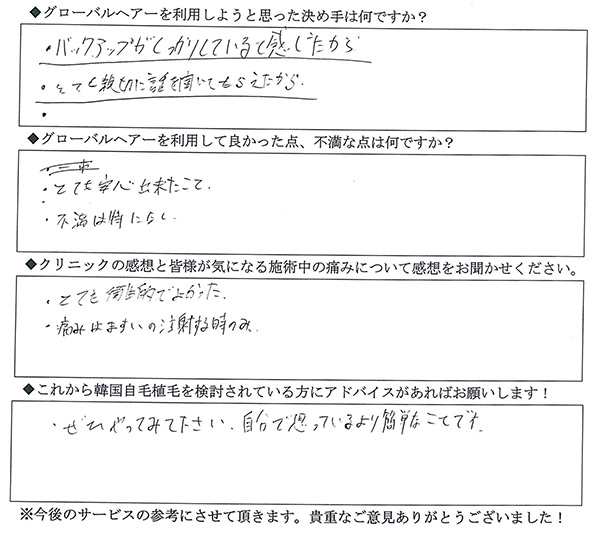 ◆グローバルヘアーを利用しようと思った決め手は何ですか？
・バックアップがしっかりしていると感じたから
・とても親切に話を聞いてもらえたから.
・
◆グローバルヘアーを利用して良かった点、不満な点は何ですか？
・とても安心出来たこと.
・不満は特になし.
◆クリニックの感想と皆様が気になる施術中の痛みについて感想をお聞かせください。
・とても衛生的でよかった.
・痛みはますいの注射する時のみ.
◆これから韓国自毛植毛を検討されている方にアドバイスがあればお願いします！
・ぜひやってみて下さい.自分で思っているより簡単なことです.
※今後のサービスの参考にさせて頂きます。貴重なご意見ありがとうございました！